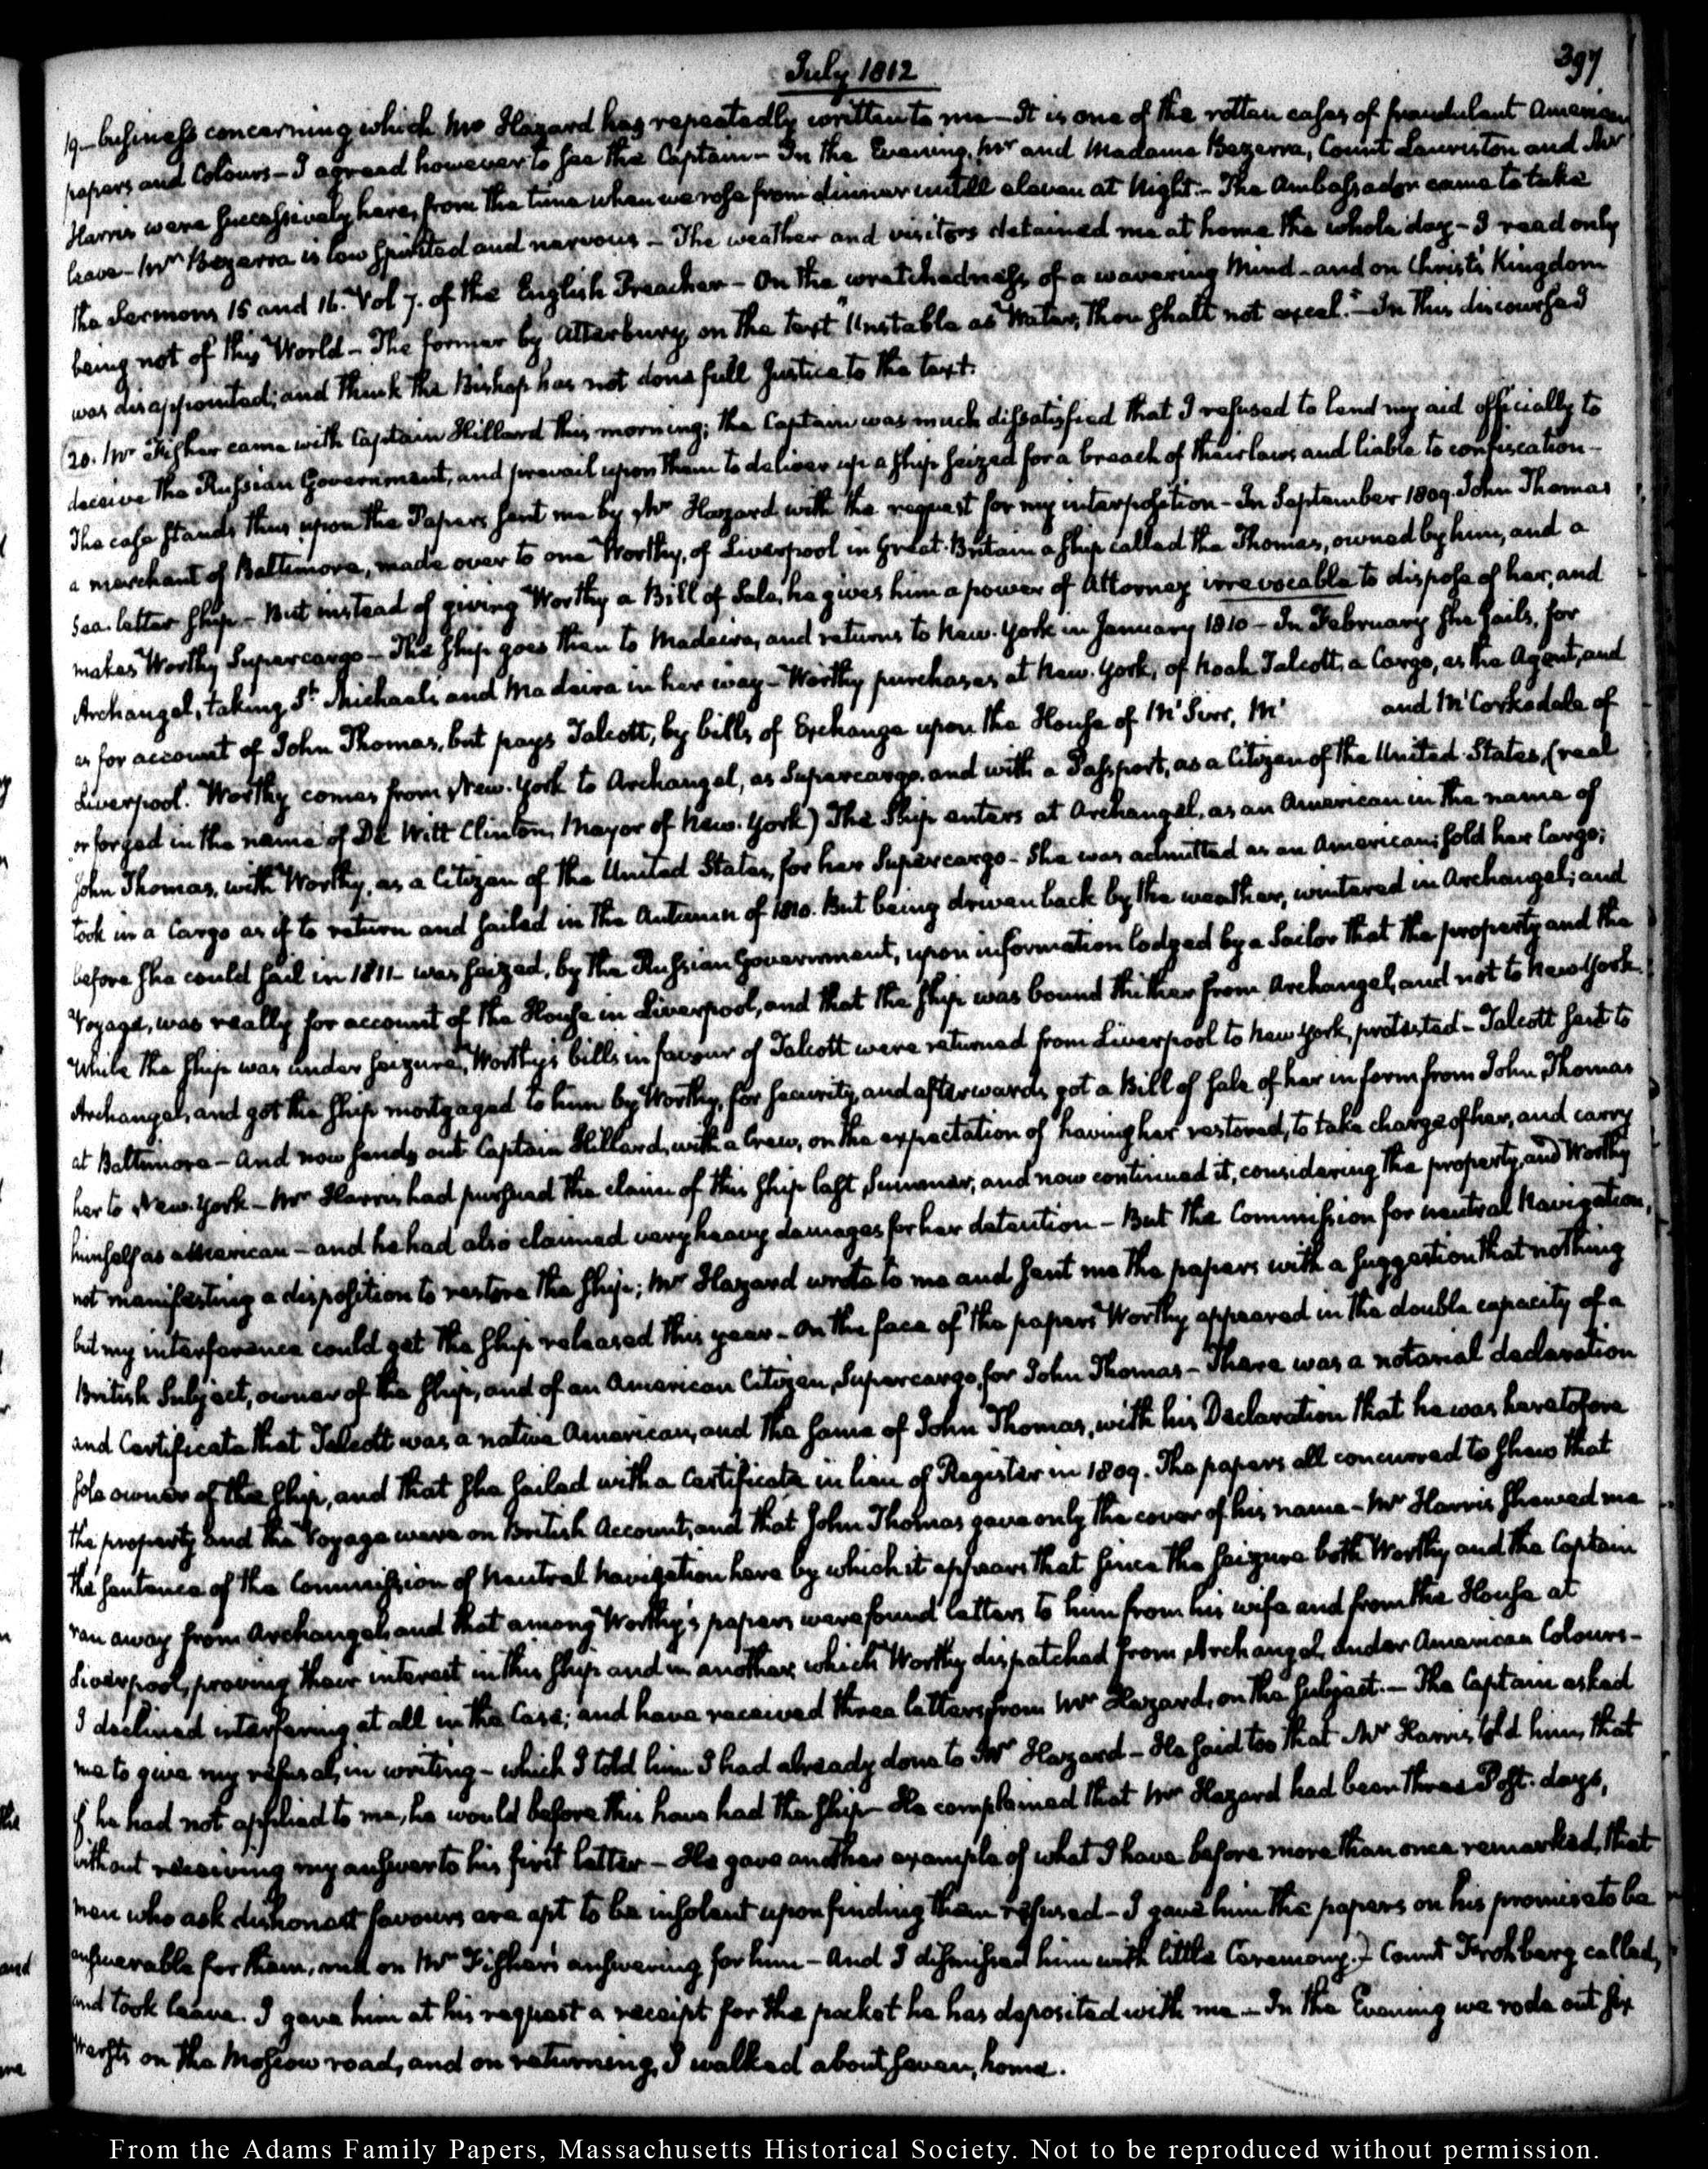 July 1812
397
19— business concerning which Mr Hazard has repeatedly written to me— It is one of the rotten cases of fraudulent American
papers and Colours— I agreed however to see the Captain— In the Evening, Mr and Madame Bezerra, Count Lauriston and Mr
Harris were successively here, from the time when we rose from dinner untill eleven at Night.— The Ambassador came to take
leave— Mr Bezerra is low spirited and nervous— The weather and visitors detained me at home the whole day— I read only
the Sermons 15 and 16. Vol 7. of the English Preacher— On the wretchedness of a wavering Mind— and on Christ's Kingdom
being not of this World— The former by Atterbury, on the text "Unstable as Water, Thou shalt not excel."— In this discourse I
was disappointed; and think the Bishop has not done full Justice to the text.
20. Mr Fisher came with Captain Hillard this morning; the Captain was much dissatisfied that I refused to lend my aid officially to
deceive the Russian Government, and prevail upon them to deliver up a ship seized for a breach of their laws and liable to confiscation—
The case stands thus upon the Papers sent me by Mr Hazard with the request for my interposition— In September 1809. John Thomas
a merchant of Baltimore, made over to one Worthy, of Liverpool in Great-Britain a ship called the Thomas, owned by him, and a
Sea-letter ship— But instead of giving Worthy a Bill of Sale, he gives him a power of Attorney irrevocable to dispose of her, and
makes Worthy Supercargo— The ship goes then to Madeira, and returns to New-York in January 1810— In February she sails, for
Archangel, taking St Michaels and Madeira in her way— Worthy purchases at New-York, of Noah Talcott, a Cargo, as the Agent, and
as for account of John Thomas, but pays Talcott, by bills of Exchange upon the House of and McCorkedale of
Liverpool. Worthy comes from New-York to Archangel, as Supercargo, and with a Passport, as a Citizen of the United States, (real
or forged in the name of De Witt Clinton, Mayor of New-York) The Ship enters at Archangel, as an American in the name of
John Thomas, with Worthy, as a Citizen of the United States, for her Supercargo— She was admitted as an American; sold her Cargo;
took in a Cargo as if to return and sailed in the Autumn of 1810. But being driven back by the weather, wintered in Archangel; and
before she could sail in 1811— was seized, by the Russian Government, upon information lodged by a Sailor that the property and the
Voyage, was really for account of the House in Liverpool, and that the ship was bound thither from Archangel, and not to New York.
While the ship was under seizure, Worthy's bills in favour of Talcott were returned from Liverpool to New York, protested— Talcott sent to
Archangel, and got the ship mortgaged to him by Worthy, for security, and afterwards got a Bill of Sale of her in form from John Thomas
at Baltimore— And now sends out Captain Hillard, with a Crew, on the expectation of having her restored, to take charge of her, and carry
her to New-York— Mr Harris had pursued the claim of this ship last Summer, and now continued it, considering the property, and Worthy
himself as American— and he had also claimed very heavy damages for her detention— But the Commission for neutral Navigation,
not manifesting a disposition to restore the ship; Mr Hazard wrote to me and sent me the papers with a suggestion that nothing
but my interference could get the ship released this year— On the face of the papers Worthy appeared in the double capacity of a
British Subject, owner of the ship, and of an American Citizen, Supercargo for John Thomas— There was a notarial declaration
and Certificate that Talcott was a native American, and the same of John Thomas, with his Declaration that he was heretofore
sole owner of the ship, and that she sailed with a Certificate in lieu of Register in 1809. The papers all concurred to shew that
the property and the Voyage were on British Account, and that John Thomas gave only the cover of his name— Mr Harris shewed me
the sentence of the Commission of Neutral Navigation here by which it appears that since the seizure both Worthy and the Captain
ran away from Archangel, and that among Worthy's papers were found letters to him from his wife and from the House at
Liverpool, proving their interest in this ship and in another, which Worthy dispatched from Archangel, under American Colours—
I declined interfering at all in the Case; and have received three letters from Mr Hazard, on the subject.— The Captain asked
me to give my refusal, in writing— which I told him I had already done to Mr Hazard— He said too that Mr Harris told him, that
if he had not applied to me, he would before this have had the ship— He complained that Mr Hazard had been three Post-days,
without receiving my answer to his first letter— He gave another example of what I have before more than once remarked, that
men who ask dishonest favours are apt to be insolent upon finding them refused— I gave him the papers on his promise to be
answerable for them, and on Mr Fisher's answering for him— And I dismissed him with little Ceremony.) Count called,
and took leave. I gave him at his request a receipt for the packet he has deposited with me— In the Evening we rode out six
Wersts on the Moscow road, and on returning, I walked about seven, home.
From the Adams Family Papers, Massachusetts Historical Society. Not to be reproduced without permission.